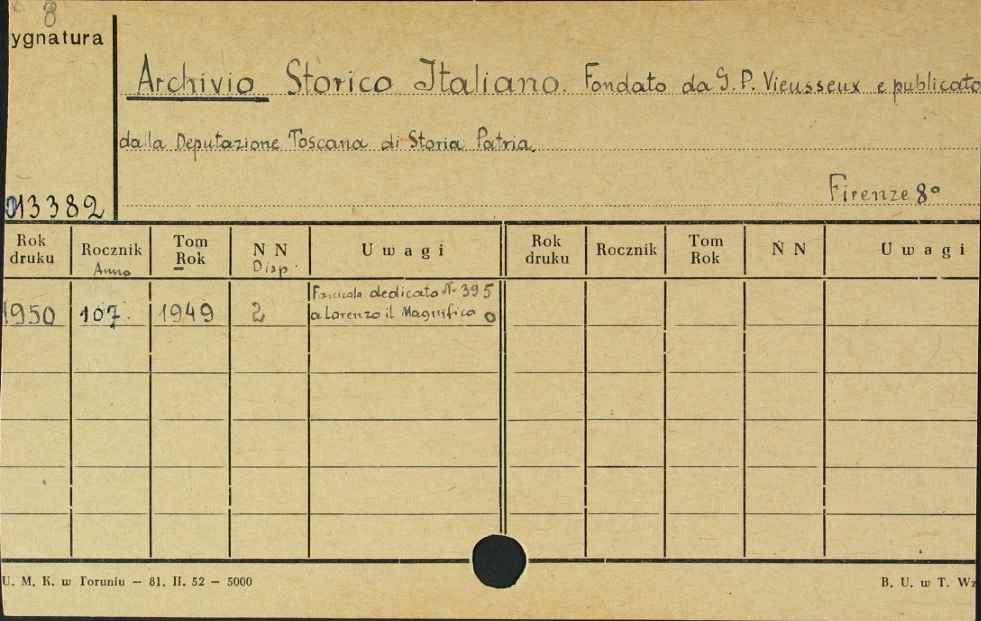 8
ygnatura
Archivio Storico Italiano. Fondato da G. P. Vieusseux e publicato
dalla Deputazione Toscana di Storia Patria
Firenze 8°
013382
Rok druku Rocznik Anno Tom Rok N N Disp. Uwagi Rok druku Rocznik Tom Rok N N Uwagi
1950 107. 1949 2 Fascicolo dedicato N. 395
a Lorenzo il Magnifico o
U. M. K. w Toruniu — 81. II. 52 — 5000
B. U. w T. Wz